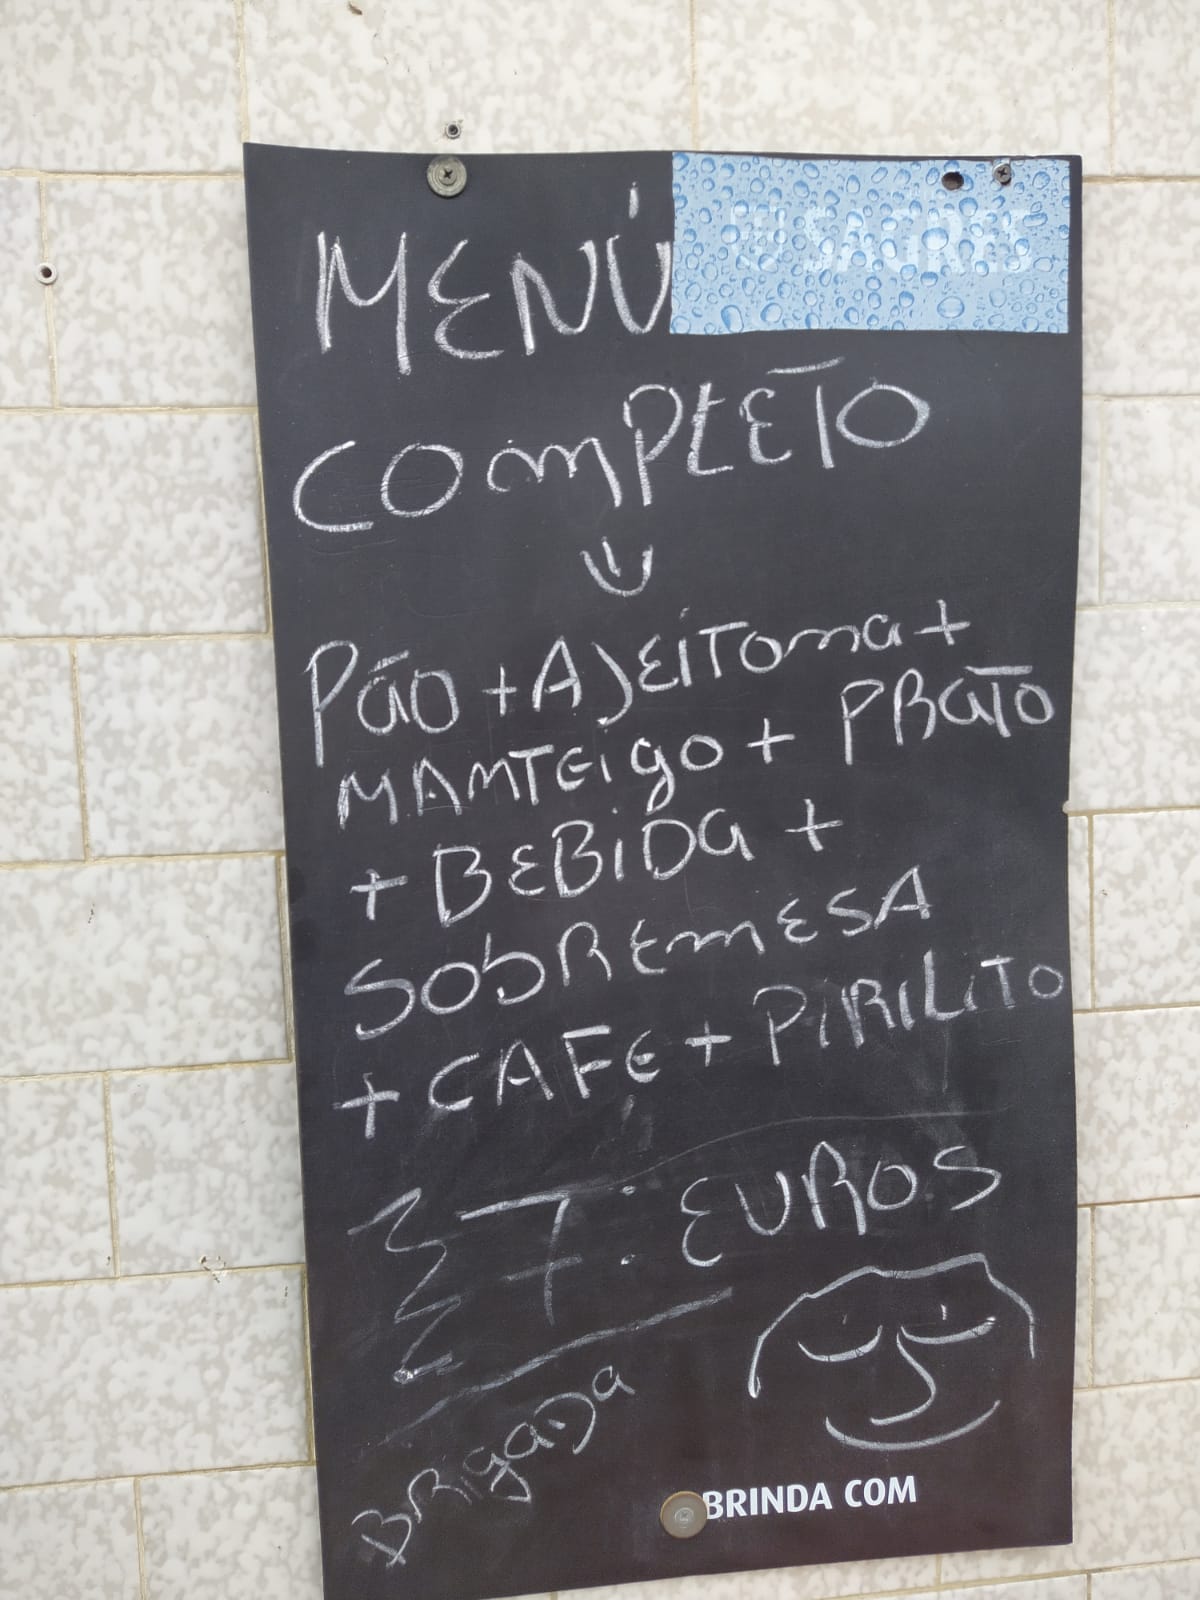 SAGRES
MENÚ
COMPLETO
PÃO + AJEITONA +
MANTEIGO + PRATO
+ BEBIDA +
SOBREMESA
+ CAFE + PIRILITO
7: EUROS
BRIGADA
BRINDA COM